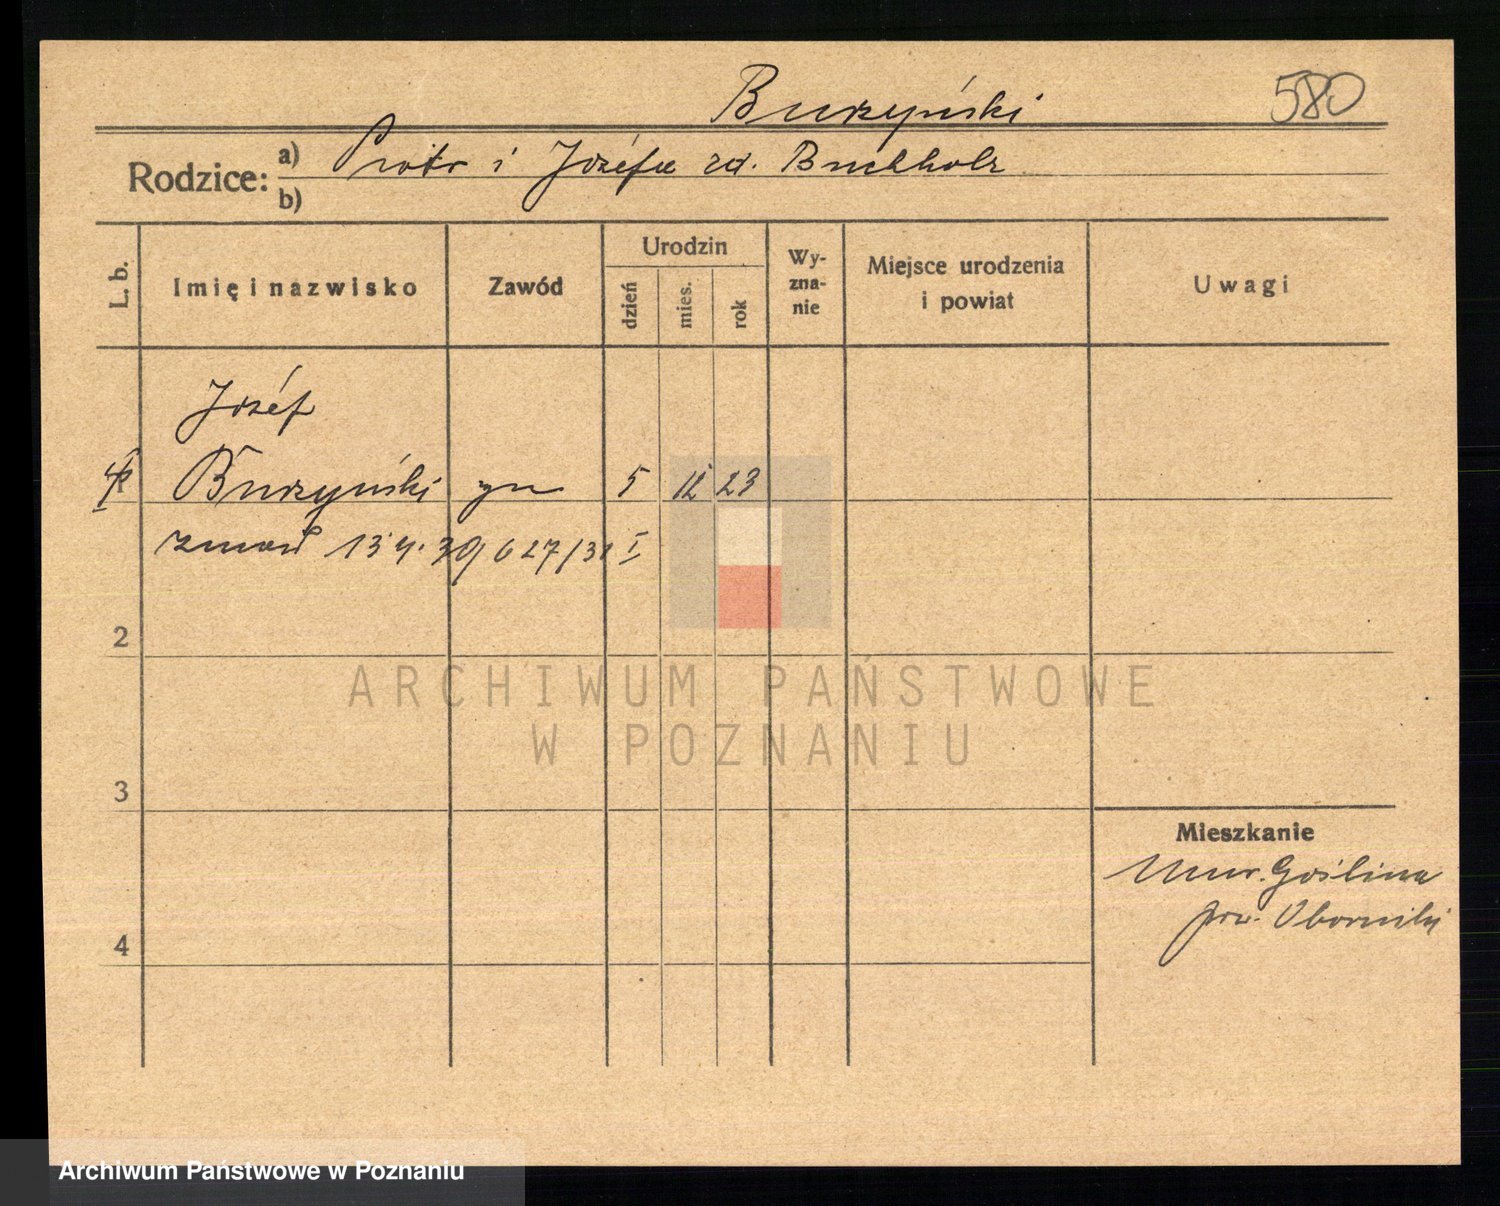 Burzyński 580
Rodzice: a) Piotr i Józefa zd. Buchholz
b)
L. b. Imię i nazwisko Zawód Urodzin dzień mies. rok Wy-zna-nie Miejsce urodzenia i powiat Uwagi
Józef
Burzyński syn 5 12 23
13 4. 39 627/31 I
2
3
4
Mieszkanie
Mur. Goślina
pow. Oborniki
ARCHIWUM PAŃSTWOWE
W POZNANIU
Archiwum Państwowe w Poznaniu